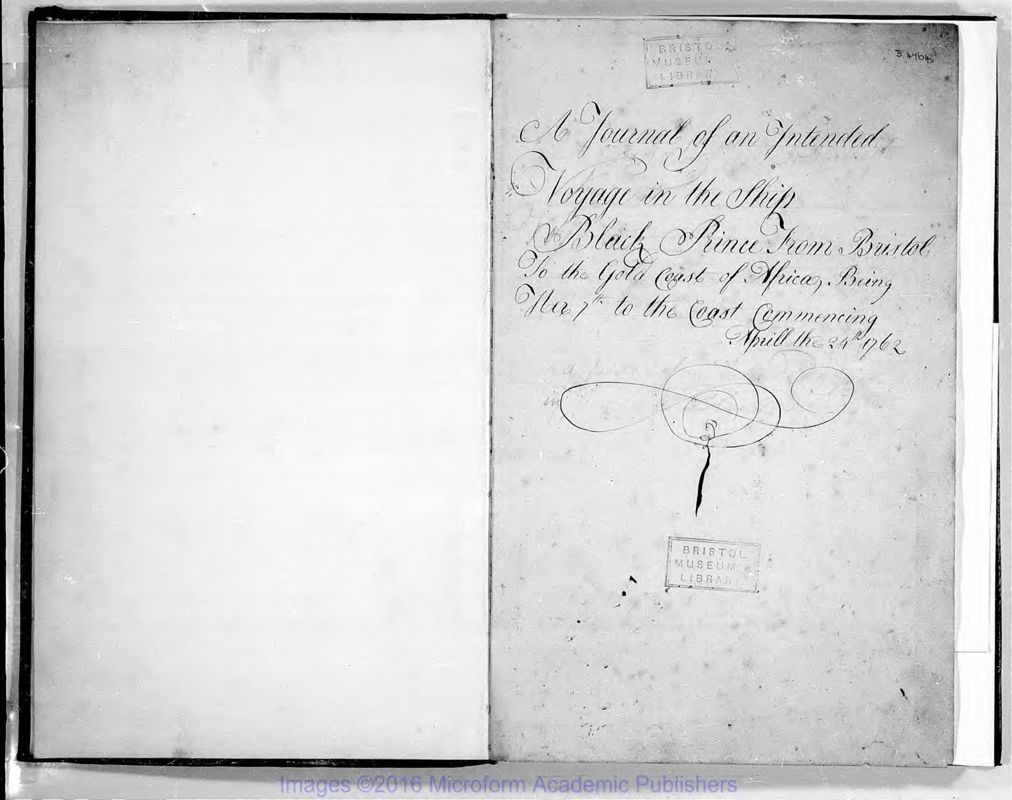 BRISTOL
MUSEUM
LIBRARY
A Journal of an Intended
Voyage in the Ship
Black Prince From Bristol
To the Gold Coast of Africa, Being
Her 7th to the Coast Commencing
Aprill the 24th 1762
BRISTOL
MUSEUM &
LIBRARY
Images ©2016 Microform Academic Publishers